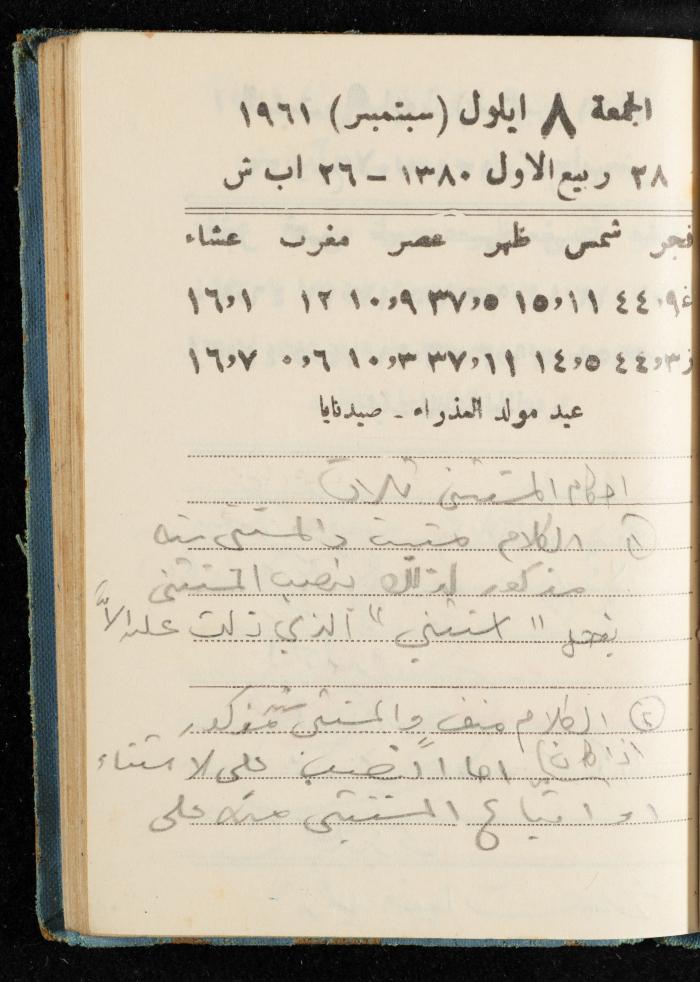 الجمعة ٨ ايلول (سبتمبر) ١٩٦١
٢٨ ربيع الاول ١٣٨٠ – ٢٦ اب ش
فجر شمس ظهر عصر مغرب عشاء
غ ٩،٤٤ ١١،١٥ ٥،٣٧ ٩،١٠ ١٢ ١،١٦
ز ٣،٤٤ ٥،١٤ ١١،٣٧ ٣،١٠ ٦،٠ ٧،١٦
عيد مولد العذراء - صيدنايا
احكام المستثنى ثلاث
(١) الكلام مثبت والمستثنى منه
مذكور لذلك ينصب المستثنى
بفعل "استثني" الذي دلت عليه الاّ
(٢) الكلام منفي والمستثنى منه مذكور
اذا كان اما النصب على الاستثناء
او اتباع المستثنى منه على